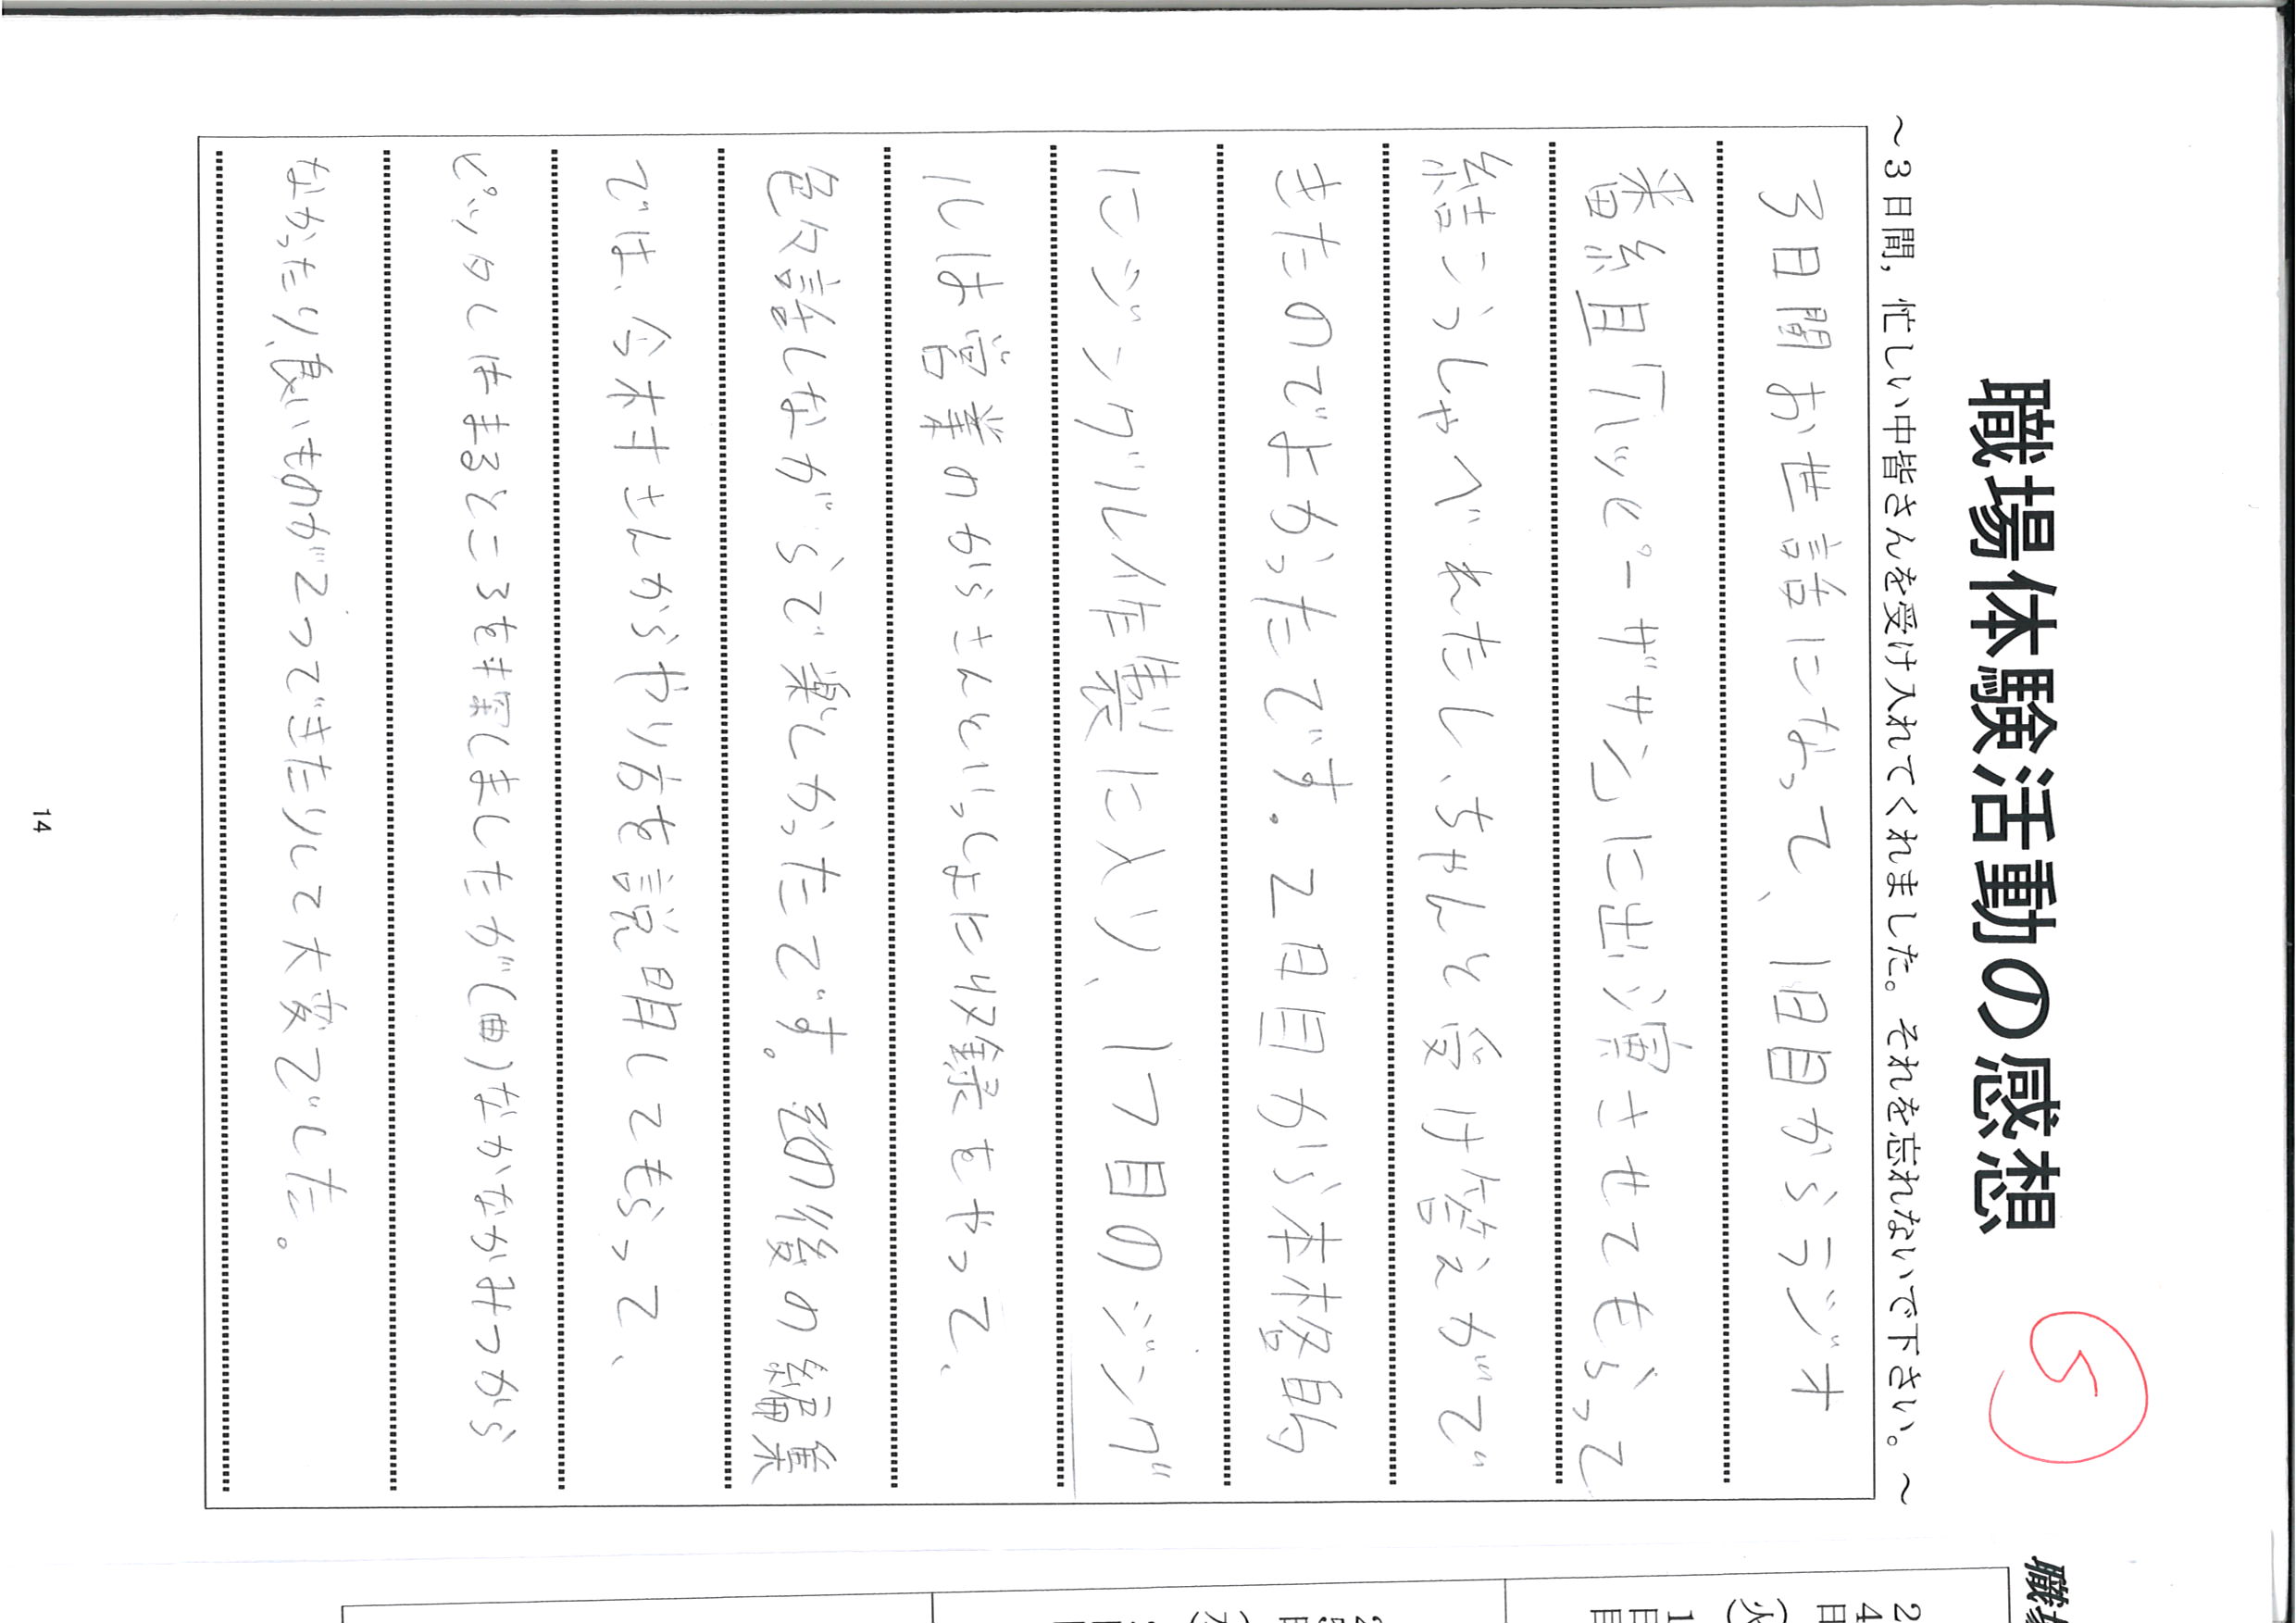 職場体験活動の感想
~3日間, 忙しい中皆さんを受け入れてくれました。それを忘れないで下さい。~
3日間お世話になって、1日目からラジオ
番組「ハッピーザサン」に出演させてもらって
結こうしゃべれたし、ちゃんと受け答えがで
きたのでよかったです。2日目から本格的
にジングル作製に入り、1つ目のジング
ルは営業のからさんといっしょに収録をやって、
色々話しながらで楽しかったです。その後の編集
では、今村さんからやり方を説明してもらって、
ピッタしはまるところをも索しましたが(曲)なかなかみつから
なかったり良いものが2つできたりして大変でした。
14